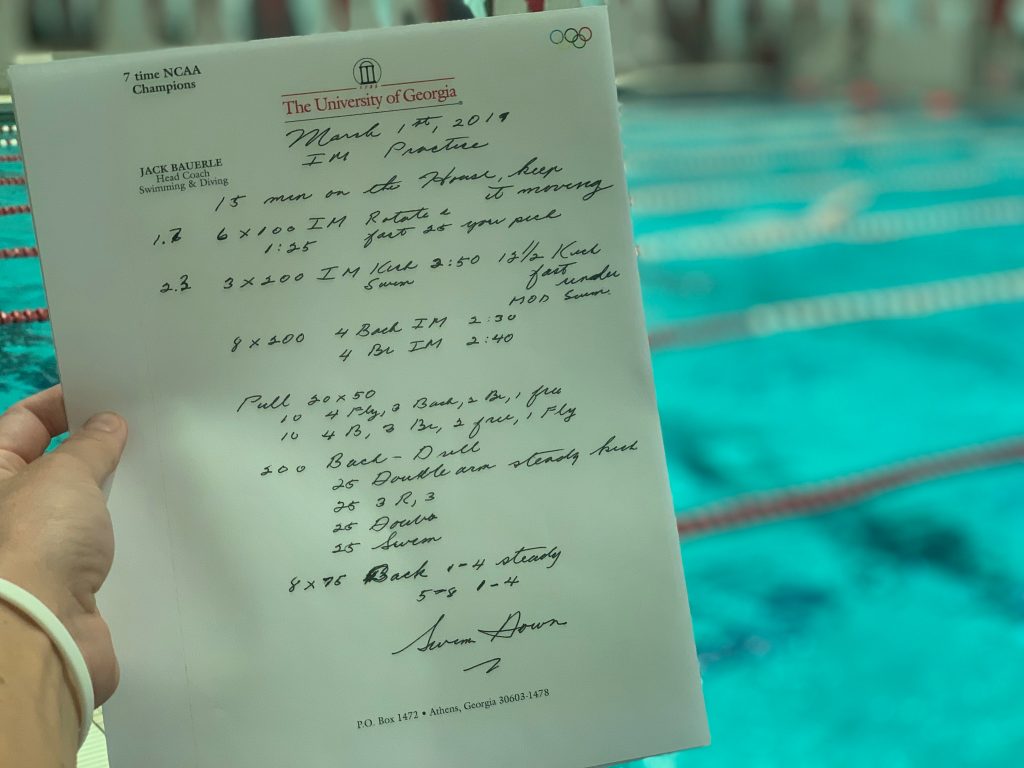 7 time NCAA
Champions
The University of Georgia
JACK BAUERLE
Head Coach
Swimming & Diving
March 1st, 2019
IM Practice
15 min on the House, keep
it moving
1.7 6 x 100 IM Rotate &
1:25 fast 25 you pick
2.3 3 x 200 IM Kick 2:50 12 1/2 Kick
Swim fast
under
MOD Swim.
8 x 200 4 Back IM 2:30
4 Br IM 2:40
Pull 20 x 50
10 4 Fly, 3 Back, 2 Br, 1 free
10 4 B, 3 Br, 2 free, 1 Fly
200 Back - Drill
25 Double arm steady kick
25 3 R, 3
25 Double
25 Swim
8 x 75 Back 1-4 steady
5-8 1-4
Swim Down
P.O. Box 1472 • Athens, Georgia 30603-1478